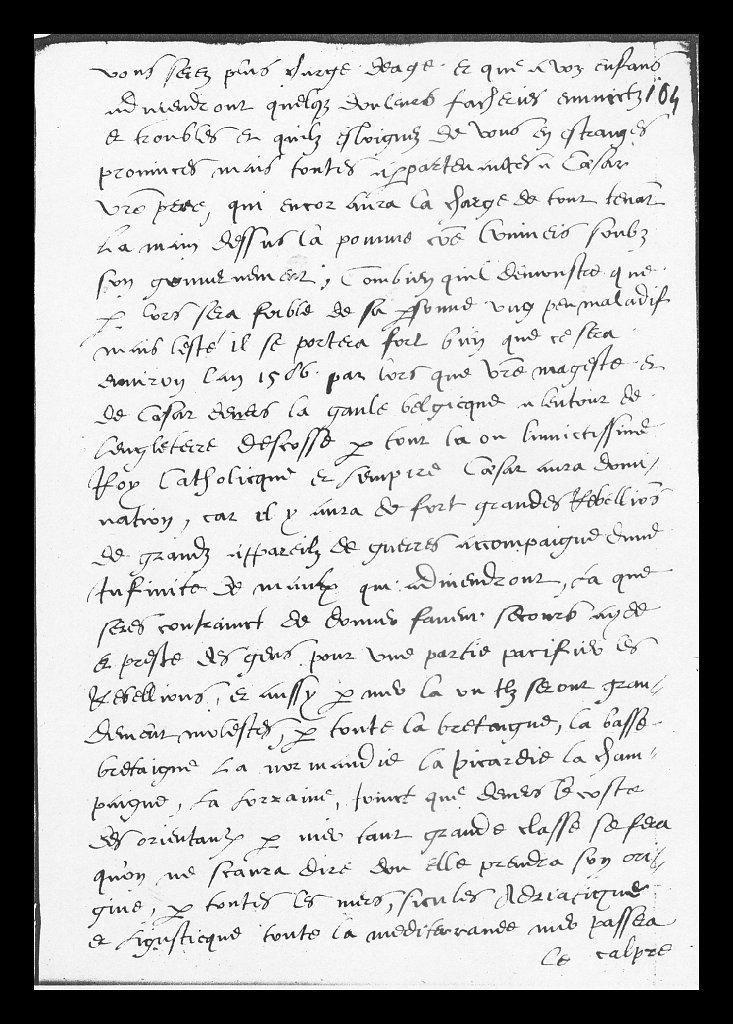 vous serez plus charge deage et que a voz enfans
adviendront quelqz douleurs facheries ennuictz 164
et troubles et quilz esloignez de vous en estranges
provinces mais toutes appartenantes a Cæsar
vre pere, qui encor aura la charge de tout tenant
La main dessus la pomme cõe lunivers soubz
son gouvernement, Combien quil demonstre que
p lors sera foible de sa psonne ung peu maladif
mais lesté il se portera fort bien que ce sera
environ lan 1586 par lors que vre mageste et
de Cæsar devers la gaule belgicque a lentour de
Lengleterre descosse p tout la ou linvictissime
Roy Catholicque et Lempire Cæsar aura domi-
nation, car il y aura de fort grandes Rebelliõs
de grandz appareilz de guerres accompaigne dune
Infinite de maulx qui adviendront, La que
seres contrainct de donner faveur secours ayde
et preste des gens pour une partie pacifier les
Rebellions, et aussy p mer la ou ilz seront gran-
dement molestes, p toute la bretaigne, la basse
bretaigne La normandie la picardie la cham-
paigne, La Lorraine, Joinct que devers les costes
des orientaulx p mer tant grande classe se fera
quon ne scaura dire dou elle prendra son ori-
gine, p toutes les mers, sicules Adriaticque
et Ligusticque toute la mediterranee mer passera
Le calpre